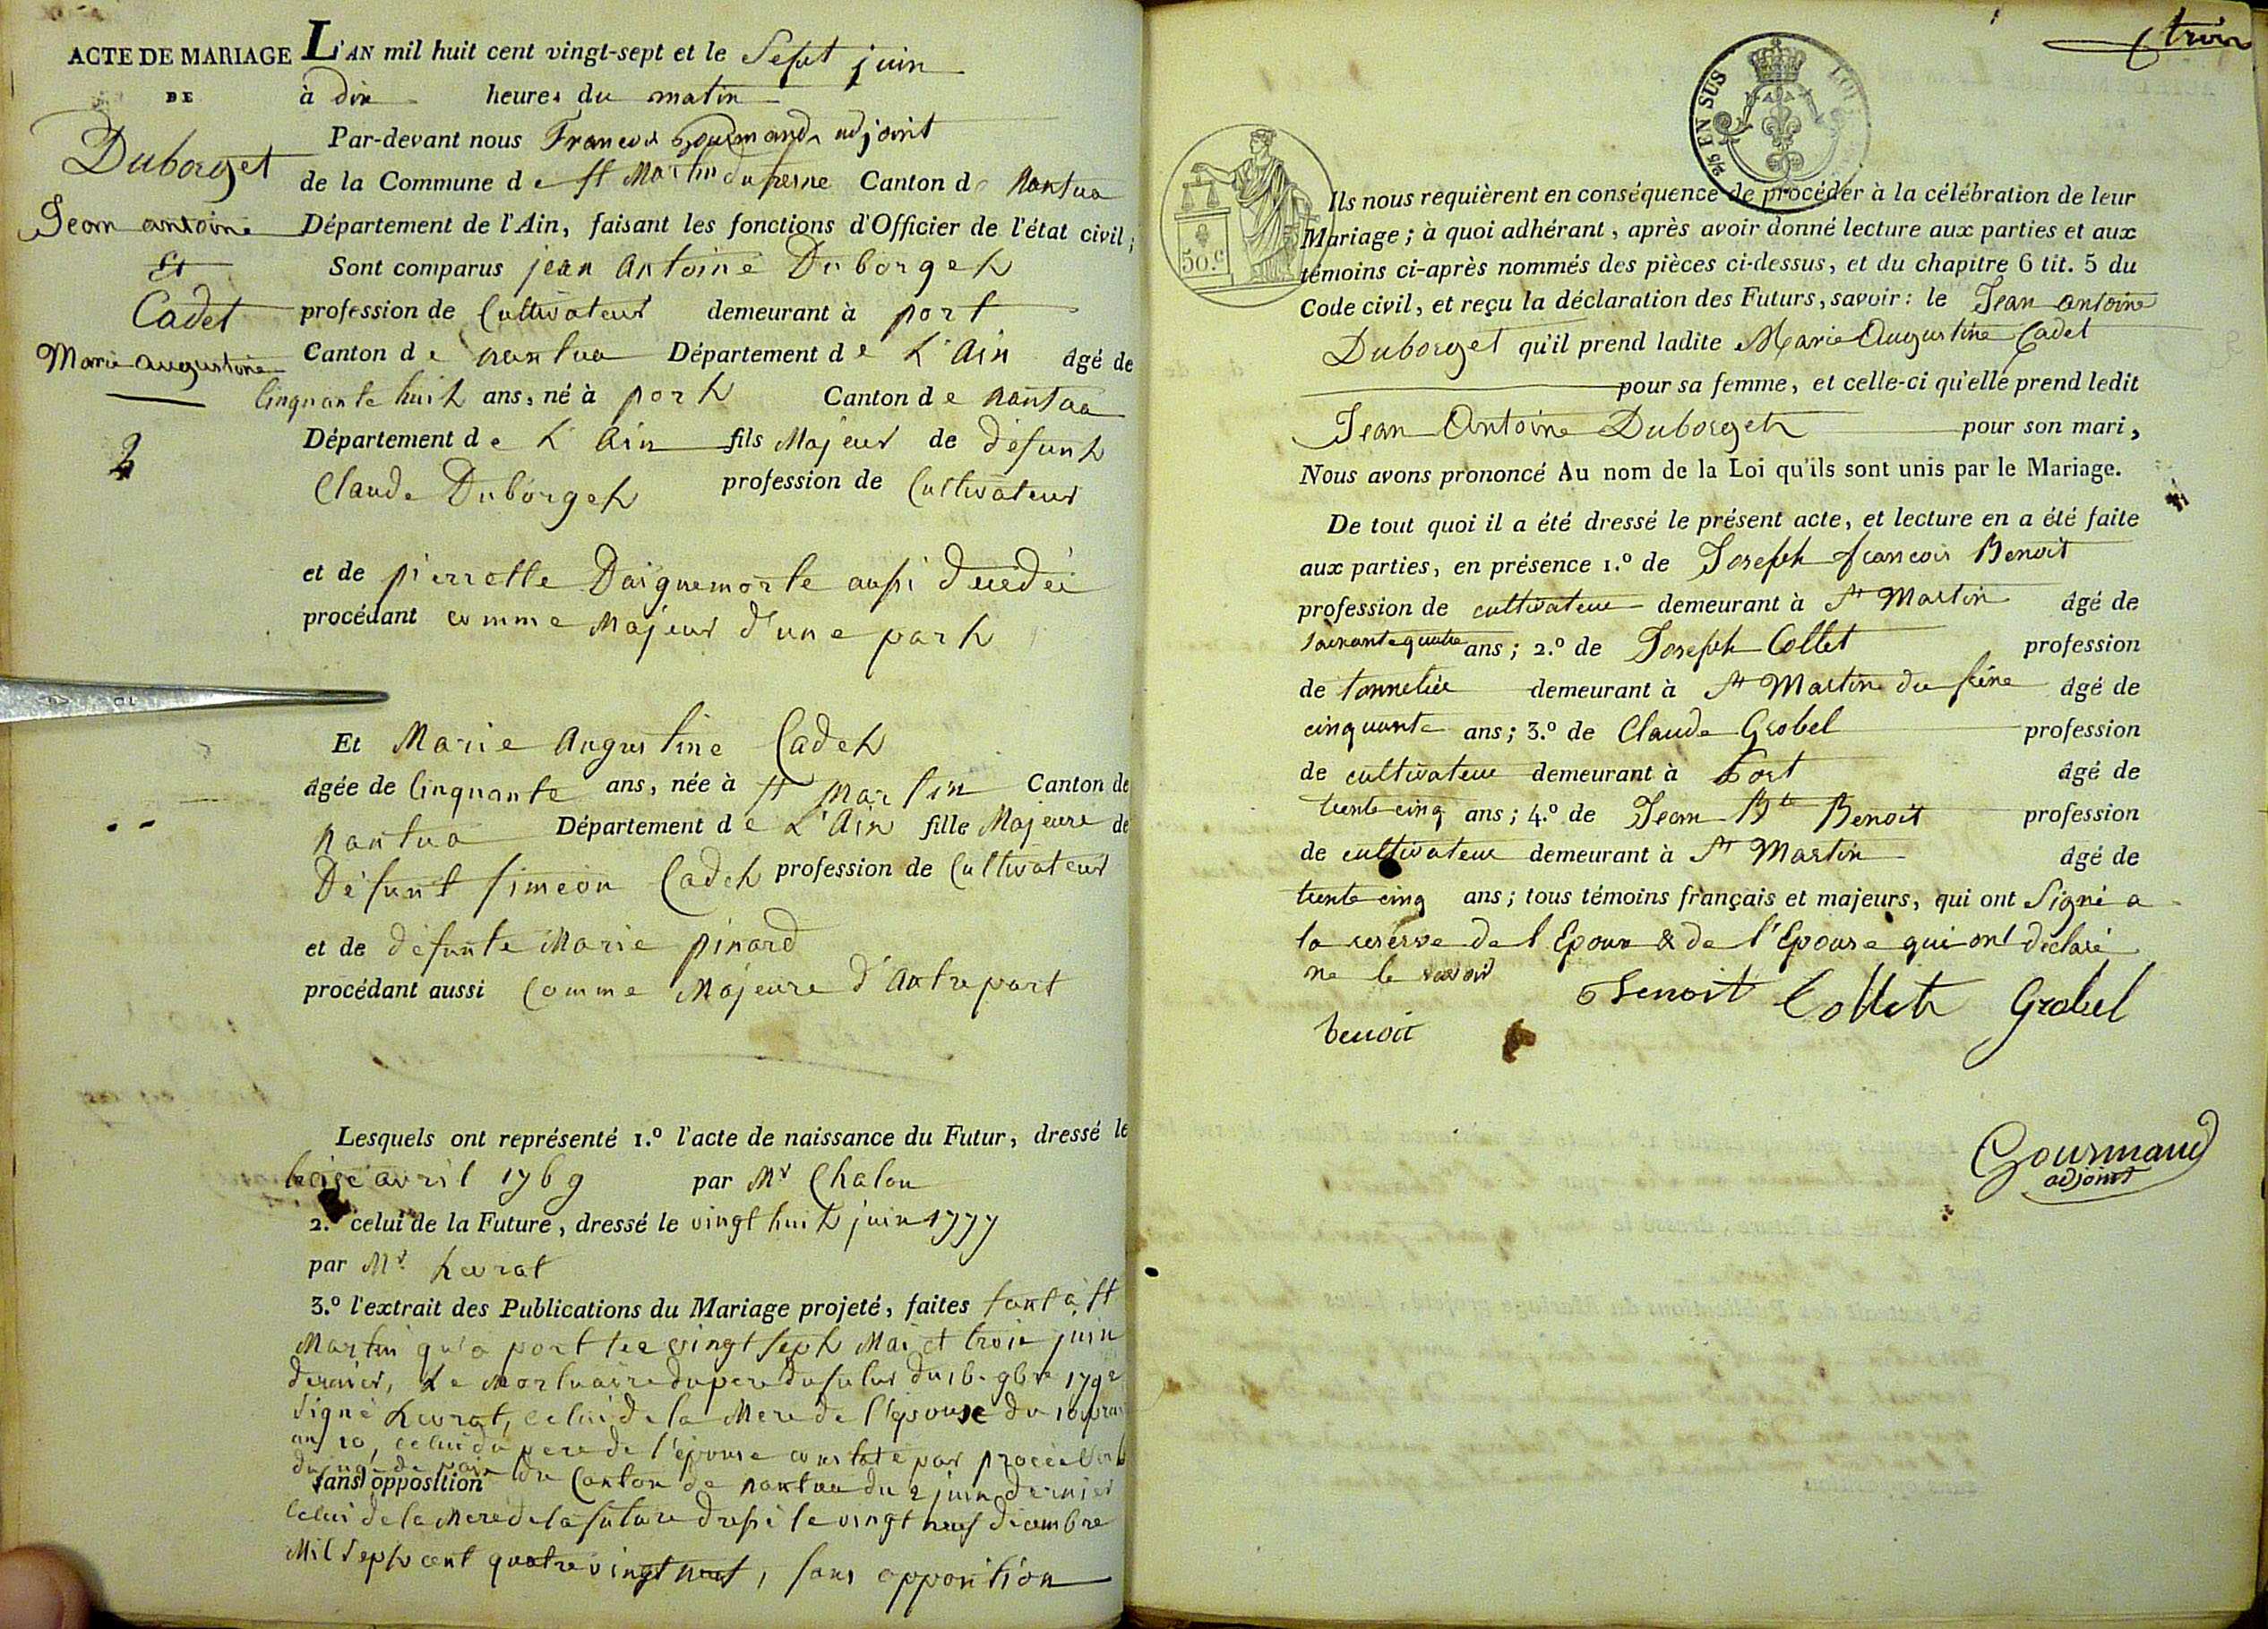 ACTE DE MARIAGE
DE
Duborget
Jean antoine
Et
Cadet
Marie augustine
2
L'AN mil huit cent vingt-sept et le Sept juin
à dix heures du matin
Par-devant nous Francois Gourmand adjoint
de la Commune de st Martin dufresne Canton de Nantua
Département de l'Ain, faisant les fonctions d'Officier de l'état civil;
Sont comparus jean Antoine Duborget
profession de Cultivateur demeurant à port
Canton de nantua Département de L'Ain âgé de
Cinquante huit ans, né à port Canton de nantua
Département de L'Ain fils Majeur de défunt
Claude Duborget profession de Cultivateur
et de pierrette Daiguemorte aussi decedée
procédant comme Majeur d'une part
Et Marie Augustine Cadet
âgée de Cinquante ans, née à st Martin Canton de
nantua Département de L'Ain fille Majeure de
Défunt simeon Cadet profession de Cultivateur
et de défunte Marie pinard
procédant aussi Comme Majeure d'Autre part
Lesquels ont représenté 1.º l'acte de naissance du Futur, dressé le
treise avril 1769 par Mr Chalon
2.º celui de la Future, dressé le vingt huit juin 1777
par Mr. Levrat
3.º l'extrait des Publications du Mariage projeté, faites tant à st
Martin qu'a port les vingt sept Mai et trois juin
dernier, Le Mortuaire du pere du futur du 16. 9bre 1792
signé Levrat, celui de la Mere de l'épouse du 10
an 10, celui du pere de l'épouse constaté par procès Verb
du juge de paix du Canton de nantua du 2 juin dernier
sans opposition
Celui de la Mere de la future dressé le vingt neuf décembre
Mil Sept cent quatre vingt neuf, sans opposition
trois
2/5 EN SUS
LOI
50.c
Ils nous requièrent en conséquence de procéder à la célébration de leur
Mariage; à quoi adhérant, après avoir donné lecture aux parties et aux
témoins ci-après nommés des pièces ci-dessus, et du chapitre 6 tit. 5 du
Code civil, et reçu la déclaration des Futurs, savoir: le Jean antoine
Duborget qu'il prend ladite Marie Augustine Cadet
pour sa femme, et celle-ci qu'elle prend ledit
Jean Antoine Duborget pour son mari,
Nous avons prononcé Au nom de la Loi qu'ils sont unis par le Mariage.
De tout quoi il a été dressé le présent acte, et lecture en a été faite
aux parties, en présence 1.º de Joseph francois Benoit
profession de cultivateur demeurant à St Martin âgé de
soixante quatre ans; 2.º de Joseph Collet profession
de tonnelier demeurant à St Martin du frêne âgé de
cinquante ans; 3.º de Claude Grobel profession
de cultivateur demeurant à Port âgé de
trente cinq ans; 4.º de Jean Bte Benoit profession
de cultivateur demeurant à St Martin âgé de
trente cinq ans; tous témoins français et majeurs, qui ont Signé a
la reserve de l'Epoux & de l'Epouse qui ont déclaré
ne le savoir
Benoit Collet Grobel
benoit
Gourmand
adjoint